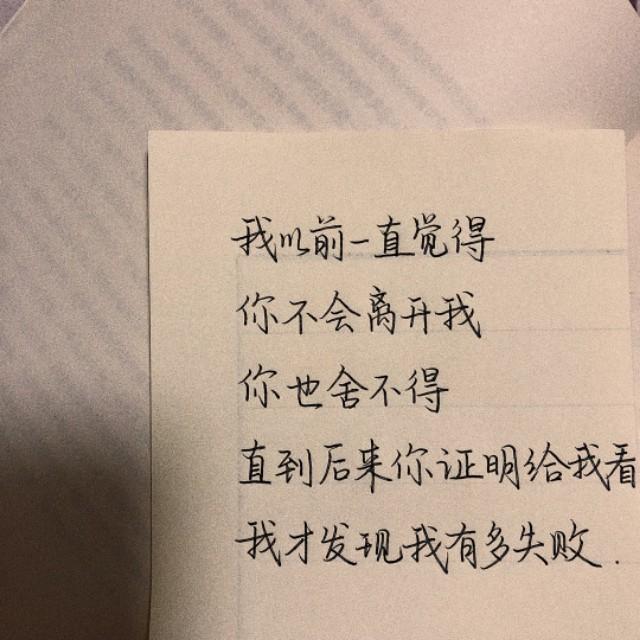 我以前一直觉得
你不会离开我
你也舍不得
直到后来你证明给我看
我才发现我有多失败.